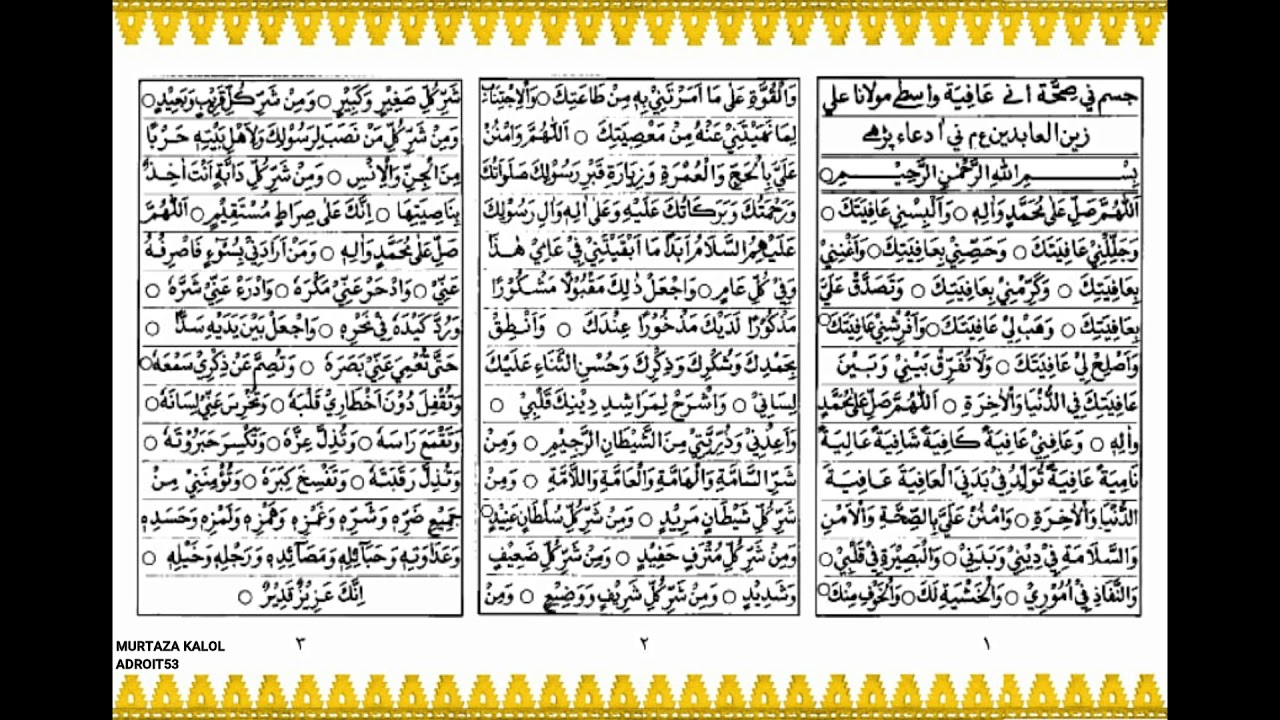 جسم ني صحّة انے عافية واسطے مولانا علي
زين العابدين ع م ني أ دعاء پڑهے
بِسْمِ اللهِ الرَّحْمٰنِ الرَّحِيْمِ ○
اَللّٰهُمَّ صَلِّ عَلٰى مُحَمَّدٍ وَاٰلِهٖ ○ وَاَلْبِسْنِيْ عَافِيَتَكَ ○
وَجَلِّلْنِيْ عَافِيَتَكَ ○ وَحَصِّنِّيْ بِعَافِيَتِكَ ○ وَاَغْنِنِيْ
بِعَافِيَتِكَ ○ وَكَرِّمْنِيْ بِعَافِيَتِكَ ○ وَتَصَدَّقْ عَلَيَّ
بِعَافِيَتِكَ ○ وَهَبْ لِيْ عَافِيَتَكَ ○ وَاَفْرِشْنِيْ عَافِيَتَكَ ○
وَاَصْلِحْ لِيْ عَافِيَتَكَ ○ وَلَا تُفَرِّقْ بَيْنِيْ وَبَيْنَ
عَافِيَتِكَ فِي الدُّنْيَا وَالْاٰخِرَةِ ○ اَللّٰهُمَّ صَلِّ عَلٰى مُحَمَّدٍ
وَاٰلِهٖ ○ وَعَافِنِيْ عَافِيَةً كَافِيَةً شَافِيَةً عَالِيَةً
نَامِيَةً عَافِيَةً تُوَلِّدُ فِيْ بَدَنِيَ الْعَافِيَةَ عَافِيَةَ
الدُّنْيَا وَالْاٰخِرَةِ ○ وَامْنُنْ عَلَيَّ بِالصِّحَّةِ وَالْاَمْنِ
وَالسَّلَامَةِ فِيْ دِيْنِيْ وَبَدَنِيْ ○ وَالْبَصِيْرَةِ فِيْ قَلْبِيْ ○
وَالنَّفَاذِ فِيْ اُمُوْرِيْ ○ وَالْخَشْيَةِ لَكَ ○ وَالْخَوْفِ مِنْكَ ○
١
وَالْقُوَّةِ عَلٰى مَا اَمَرْتَنِيْ بِهٖ مِنْ طَاعَتِكَ ○ وَالْاِجْتِنَابِ
لِمَا نَهَيْتَنِيْ عَنْهُ مِنْ مَعْصِيَتِكَ ○ اَللّٰهُمَّ وَامْنُنْ
عَلَيَّ بِالْحَجِّ وَالْعُمْرَةِ وَزِيَارَةِ قَبْرِ رَسُوْلِكَ صَلَوَاتُكَ
وَرَحْمَتُكَ وَبَرَكَاتُكَ عَلَيْهِ وَعَلٰى اٰلِهٖ وَاٰلِ رَسُوْلِكَ
عَلَيْهِمُ السَّلَامُ اَبَدًا مَا اَبْقَيْتَنِيْ فِيْ عَامِيْ هٰذَا
وَفِيْ كُلِّ عَامٍ ○ وَاجْعَلْ ذٰلِكَ مَقْبُوْلًا مَشْكُوْرًا
مَذْكُوْرًا لَدَيْكَ مَذْخُوْرًا عِنْدَكَ ○ وَاَنْطِقْ
بِحَمْدِكَ وَشُكْرِكَ وَذِكْرِكَ وَحُسْنِ الثَّنَاءِ عَلَيْكَ
لِسَانِيْ ○ وَاشْرَحْ لِمَرَاشِدِ دِيْنِكَ قَلْبِيْ ○
وَاَعِذْنِيْ وَذُرِّيَّتِيْ مِنَ الشَّيْطَانِ الرَّجِيْمِ ○ وَمِنْ
شَرِّ السَّامَّةِ وَالْهَامَّةِ وَالْعَامَّةِ وَاللَّامَّةِ ○ وَمِنْ
شَرِّ كُلِّ شَيْطَانٍ مَرِيْدٍ ○ وَمِنْ شَرِّ كُلِّ سُلْطَانٍ عَنِيْدٍ ○
وَمِنْ شَرِّ كُلِّ مُتْرَفٍ حَفِيْدٍ ○ وَمِنْ شَرِّ كُلِّ ضَعِيْفٍ
وَشَدِيْدٍ ○ وَمِنْ شَرِّ كُلِّ شَرِيْفٍ وَوَضِيْعٍ ○ وَمِنْ
٢
شَرِّ كُلِّ صَغِيْرٍ وَكَبِيْرٍ ○ وَمِنْ شَرِّ كُلِّ قَرِيْبٍ وَبَعِيْدٍ ○
وَمِنْ شَرِّ كُلِّ مَنْ نَصَبَ لِرَسُوْلِكَ وَلِاَهْلِ بَيْتِهٖ حَرْبًا
مِنَ الْجِنِّ وَالْاِنْسِ ○ وَمِنْ شَرِّ كُلِّ دَابَّةٍ اَنْتَ اٰخِذٌ
بِنَاصِيَتِهَا ○ اِنَّكَ عَلٰى صِرَاطٍ مُسْتَقِيْمٍ ○ اَللّٰهُمَّ
صَلِّ عَلٰى مُحَمَّدٍ وَاٰلِهٖ ○ وَمَنْ اَرَادَنِيْ بِسُوْءٍ فَاصْرِفْهُ
عَنِّيْ ○ وَادْحَرْ عَنِّيْ مَكْرَهٗ ○ وَادْرَهْ عَنِّيْ شَرَّهٗ ○
وَرُدَّ كَيْدَهٗ فِيْ نَحْرِهٖ ○ وَاجْعَلْ بَيْنَ يَدَيْهِ سَدًّا ○
حَتّٰى تُعْمِيَ عَنِّيْ بَصَرَهٗ ○ وَتُصِمَّ عَنْ ذِكْرِيْ سَمْعَهٗ ○
وَتُقْفِلَ دُوْنَ اَخْطَارِيْ قَلْبَهٗ ○ وَتُخْرِسَ عَنِّيْ لِسَانَهٗ ○
وَتَقْمَعَ رَاسَهٗ ○ وَتُذِلَّ عِزَّهٗ ○ وَتَكْسِرَ جَبَرُوْتَهٗ ○
وَتُذِلَّ رَقَبَتَهٗ ○ وَتَفْسَخَ كِبَرَهٗ ○ وَتُؤْمِنَنِيْ مِنْ
جَمِيْعِ ضَرِّهٖ وَشَرِّهٖ وَغَمْزِهٖ وَهَمْزِهٖ وَلَمْزِهٖ وَحَسَدِهٖ
وَعَدَاوَتِهٖ وَحَبَآئِلِهٖ وَمَصَآئِدِهٖ وَرَجْلِهٖ وَخَيْلِهٖ ○
اِنَّكَ عَزِيْزٌ قَدِيْرٌ ○
٣
MURTAZA KALOL
ADROIT53